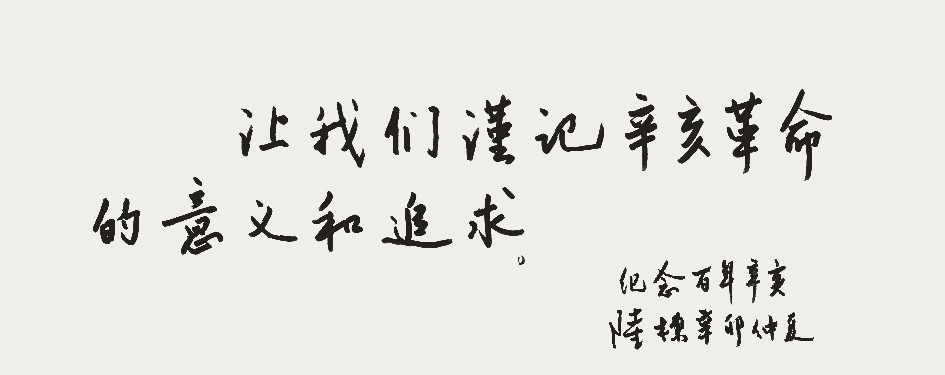 让我们谨记辛亥革命
的意义和追求。
纪念百年辛亥
陸標辛卯仲夏